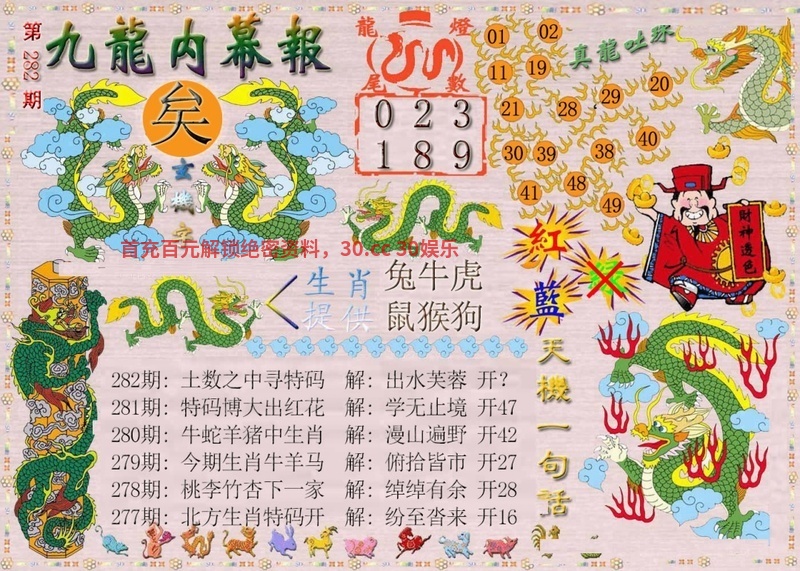 第282期
九龍内幕報
矣
玄機字
龍燈
尾數
0 2 3
1 8 9
真龍吐珠
01 02
11 19
21 28 29 20
30 39 38 40
41 48 49
首充百元解锁绝密资料，30.cc 30娱乐
財神透色
紅
藍
生肖
提供
兔牛虎
鼠猴狗
天機一句話
282期: 土数之中寻特码 解: 出水芙蓉 开?
281期: 特码博大出红花 解: 学无止境 开47
280期: 牛蛇羊猪中生肖 解: 漫山遍野 开42
279期: 今期生肖牛羊马 解: 俯拾皆市 开27
278期: 桃李竹杏下一家 解: 绰绰有余 开28
277期: 北方生肖特码开 解: 纷至沓来 开16